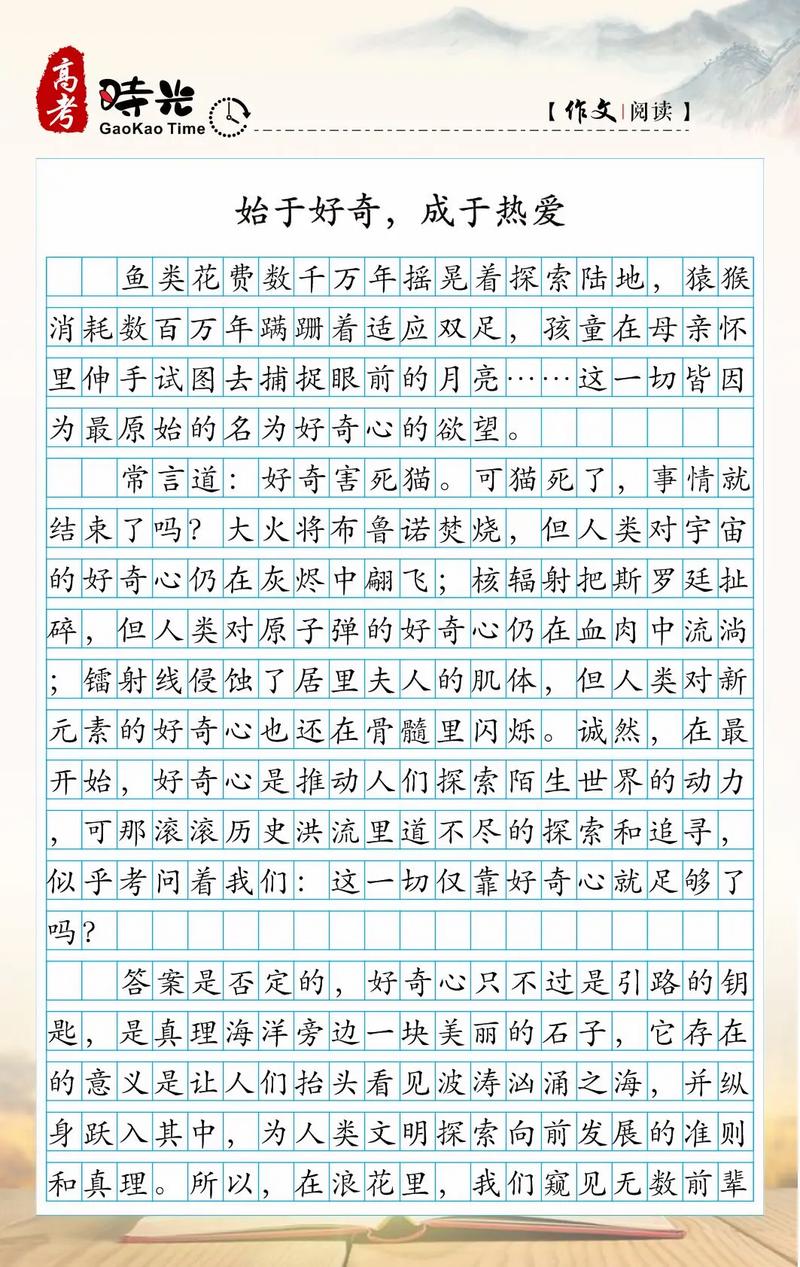 高考
時光
GaoKao Time
【作文|阅读】
始于好奇，成于热爱
鱼类花费数千万年摇晃着探索陆地，猿猴
消耗数百万年蹒跚着适应双足，孩童在母亲怀
里伸手试图去捕捉眼前的月亮……这一切皆因
为最原始的名为好奇心的欲望。
常言道：好奇害死猫。可猫死了，事情就
结束了吗？大火将布鲁诺焚烧，但人类对宇宙
的好奇心仍在灰烬中翩飞；核辐射把斯罗廷扯
碎，但人类对原子弹的好奇心仍在血肉中流淌
；镭射线侵蚀了居里夫人的肌体，但人类对新
元素的好奇心也还在骨髓里闪烁。诚然，在最
开始，好奇心是推动人们探索陌生世界的动力
，可那滚滚历史洪流里道不尽的探索和追寻，
似乎考问着我们：这一切仅靠好奇心就足够了
吗？
答案是否定的，好奇心只不过是引路的钥
匙，是真理海洋旁边一块美丽的石子，它存在
的意义是让人们抬头看见波涛汹涌之海，并纵
身跃入其中，为人类文明探索向前发展的准则
和真理。所以，在浪花里，我们窥见无数前辈